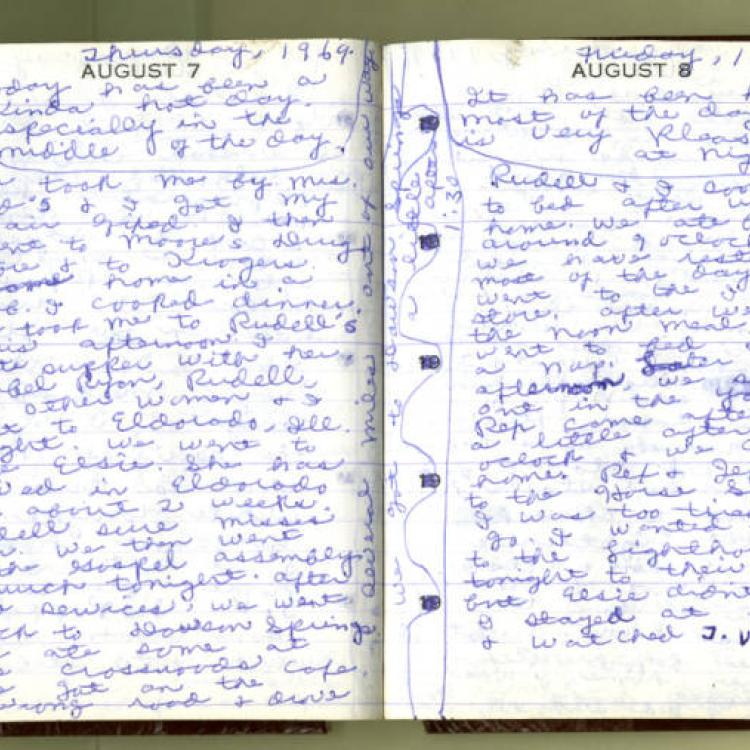 Thursday, 1969.
AUGUST 7
day has been a
kinda hot day.
especially in the
middle of the day.
took me by Mrs.
's & I got my
air fixed. I then
ent to Moore's Drug
ore & to Krogers.
home in a
b. I cooked dinner.
took me to Rudell's
is afternoon. I
te supper with her.
bel Ryon, Rudell,
other women & I
t to Eldorado, Ill.
ght. we went to
e Elsie. She has
ed in Eldorado
about 2 weeks.
dell sure misses
r. we then went
the Gospel assembly
urch tonight. after
services, we went
ch to Dawson Springs.
ate some at
s Crossroads Cafe.
e got on the
wrong road & drove
several miles out of our way
we got to Dawson Springs
a little after
1:30
Friday, 1
AUGUST 8
It has been h
most of the da
is very pleas
at nig
Rudell & I
to bed after w
home. we ate
around 9 oclock
we have rest
most of the day
went to the
store. after we
the noon meal
went to bed
a nap.
afternoon, we
one in the
Rep come afte
a little after
oclock & we
home. Rep & Je
to the Horse S
I was too tired
go. I wanted
to the Lightho
tonight to their
but Elsie didn
I stayed at
& watched T.V